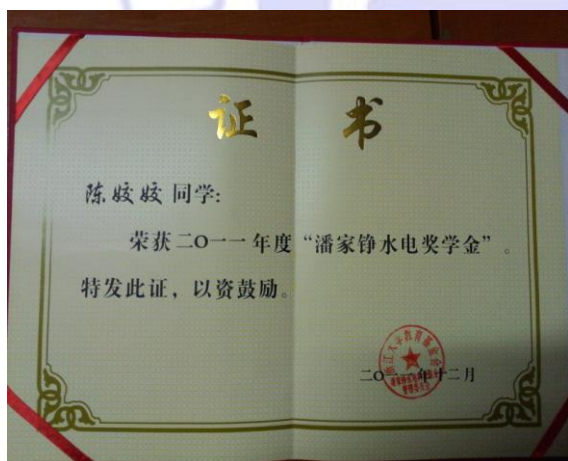 证 书
陈姣姣 同学:
荣获二〇一一年度“潘家铮水电奖学金”。
特发此证，以资鼓励。
浙江大学教育基金会
二〇一一年十二月